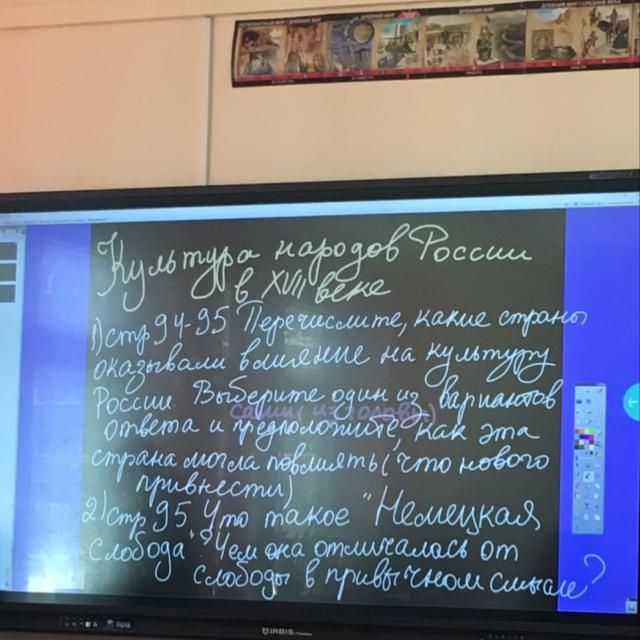 Культура народов России
в XVII веке
1) стр 94-95 Перечислите, какие страны
оказывали влияние на культуру
России. Выберите один из вариантов
ответа и предположите, как эта
страна могла повлиять (что нового
привнести)
2) стр 95 Что такое "Немецкая
слобода"? Чем она отличалась от
слободы в привычном смысле?
IRBIS